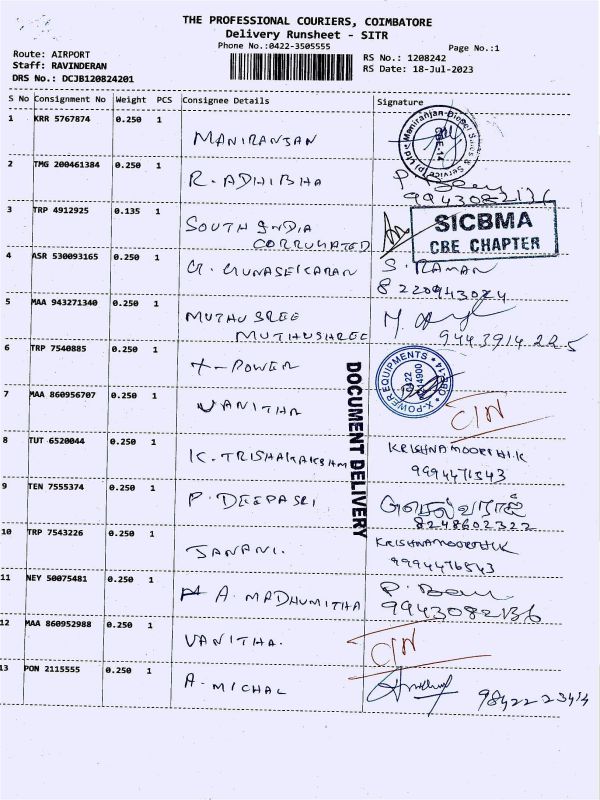 THE PROFESSIONAL COURIERS, COIMBATORE
Delivery Runsheet - SITR
Phone No.:0422-3505555
Page No.:1
Route: AIRPORT
Staff: RAVINDERAN
DRS No.: DCJB120824201
RS No.: 1208242
RS Date: 18-Jul-2023
S No Consignment No Weight PCS Consignee Details Signature
1 KRR 5767874 0.250 1 MANIRANJAN
Maniranjan-Diesel Sales & Service (p) Ltd
2 TMG 200461384 0.250 1 R. ADHIBHA
3 TRP 4912925 0.135 1 SOUTH INDIA
CORRUGATED
SICBMA
CBE CHAPTER
4 ASR 530093165 0.250 1 G. GUNASEKARAN S. RAMAN
8220943024
5 MAA 943271340 0.250 1 MUTHU SREE
MUTHUSHREE 9443914225
6 TRP 7540885 0.250 1 X-POWER
X-POWER EQUIPMENTS
7 MAA 860956707 0.250 1 VANITHA C/N
DOCUMENT DELIVERY
8 TUT 6520044 0.250 1 K. TRISHAKAKSHM KRISHNAMOORTHI.K
9994471543
9 TEN 7555374 0.250 1 P. DEEPASRI செல்வராஜ்
8248602322
10 TRP 7543226 0.250 1 JANANI. KRISHNAMOORTHI.K
9994476543
11 NEY 50075481 0.250 1 A. MADHUMITHA
9943082136
12 MAA 860952988 0.250 1 VANITHA. C/N
13 PON 2115555 0.250 1 A. MICHAL 9842223414